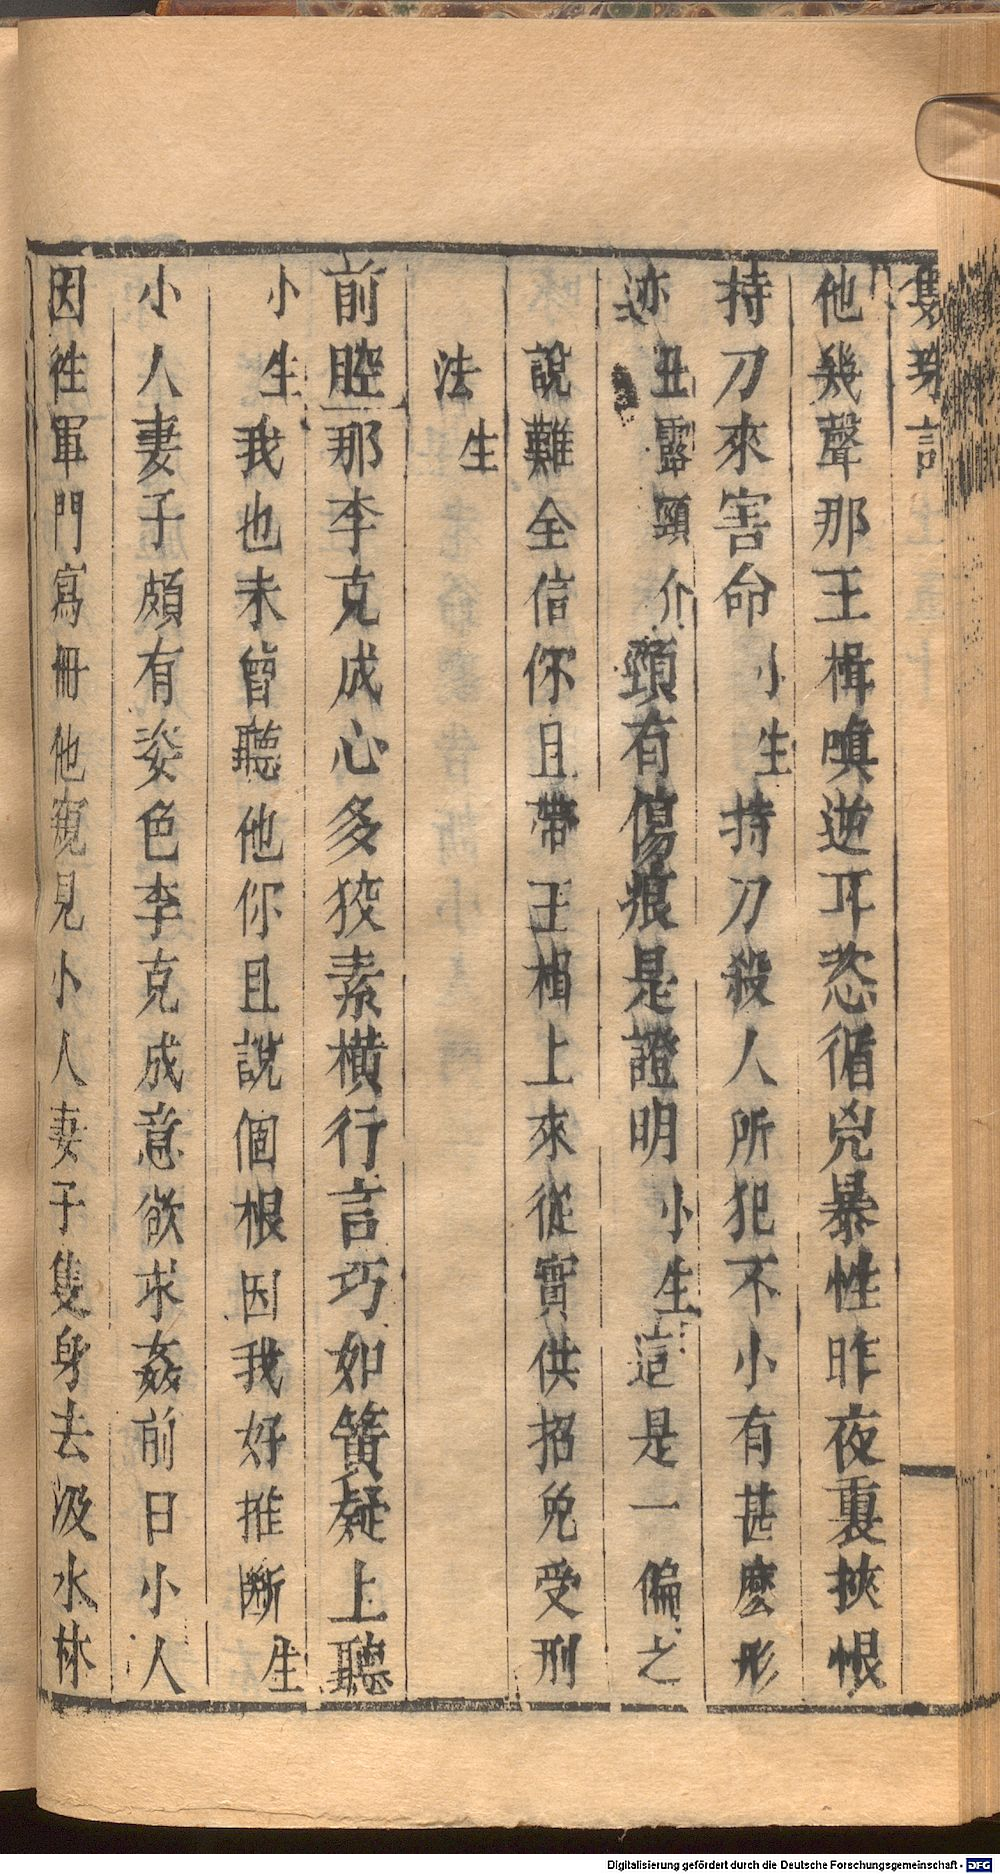 雙珠記
他幾聲那王楫嗔逆耳恣循兇暴性昨夜裏挾恨
持刀來害命小生持刀殺人所犯不小有甚麼形
迹丑露頸介頸有傷痕是證明小生這是一偏之
說難全信你且帶王楫上來從實供招免受刑
法生
前腔那李克成心多狡素橫行言巧如簧疑上聽
小生我也未曾聽他你且說個根因我好推斷生
小人妻子頗有姿色李克成意欲求姦前日小人
因徃軍門寫冊他窺見小人妻子隻身去汲水林
Digitalisierung gefördert durch die Deutsche Forschungsgemeinschaft - DFG